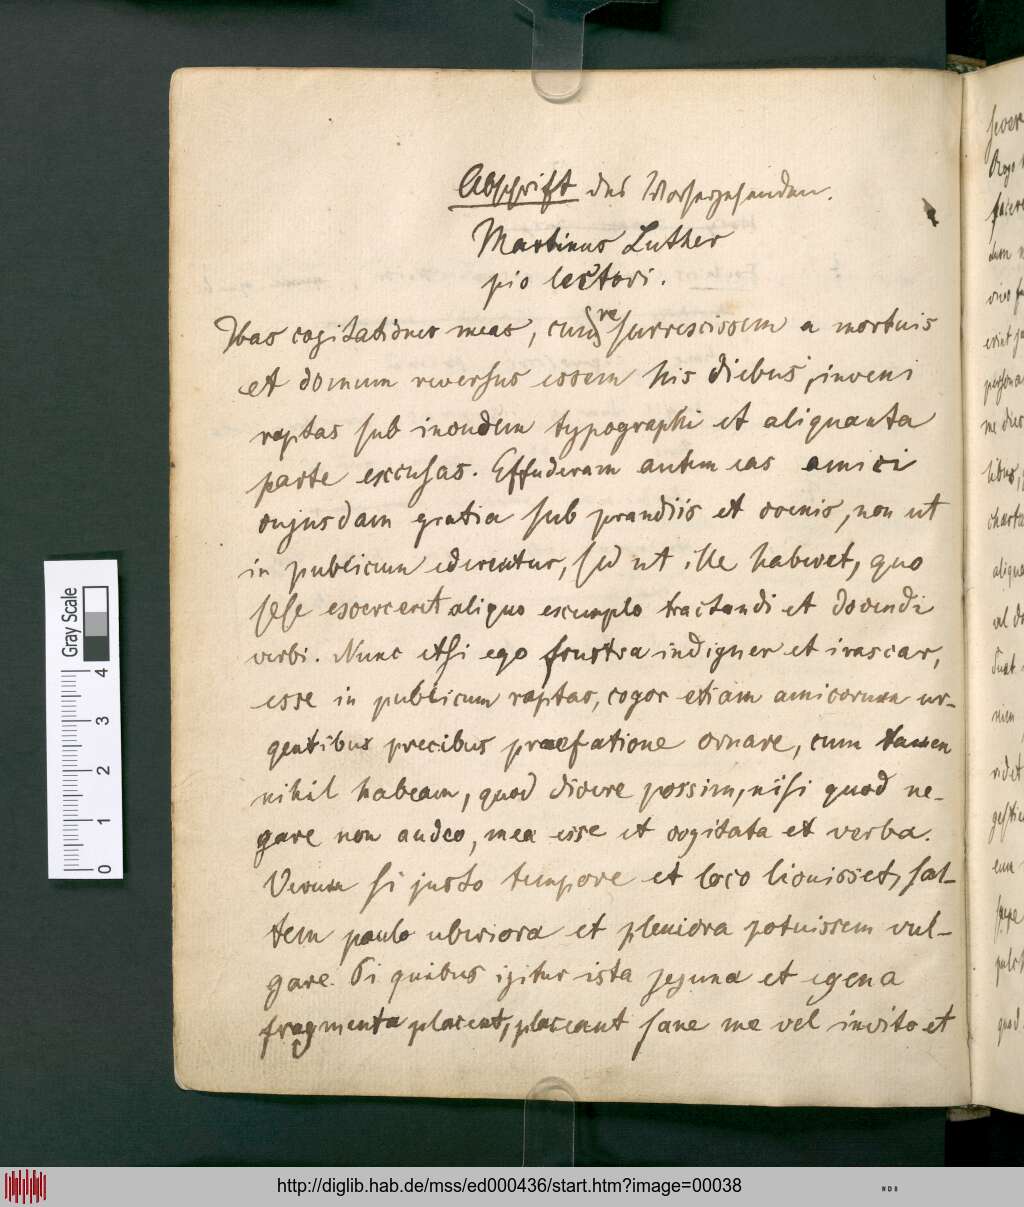 Abschrift des Vorhergehenden.
Martinus Luther
pio lectori.
Has cogitationes meas, cum re surrexissem a mortuis
et domum reversus essem his diebus, inveni
raptas sub incudem typographi et aliquanta
parte excusas. Effuderam autem eas amici
cujusdam gratia sub prandiis et coenis, non ut
in publicum ederentur, sed ut ille haberet, quo
sese exerceret aliquo exemplo tractandi et docendi
verbi. Nunc etsi ego frustra indigner et irascar,
esse in publicum raptas, cogor etiam amicorum ur-
gentibus precibus praefatione ornare, cum tamen
nihil habeam, quod dicere possim, nisi quod ne-
gare non audeo, mea esse et cogitata et verba.
Verum si justo tempore et loco licuisset, sal-
tem paulo uberiora et pleniora potuissem vul-
gare. Si quibus igitur ista jejuna et egena
fragmenta placent, placeant sane me vel invito et
Gray Scale
0 1 2 3 4
http://diglib.hab.de/mss/ed000436/start.htm?image=00038